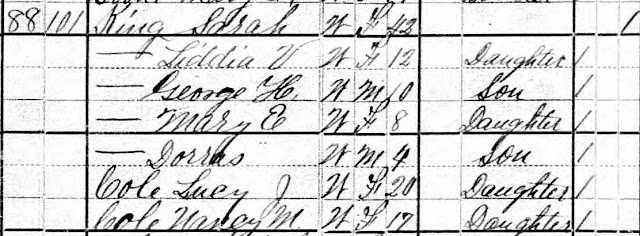 88 101 King Sarah W F 42 1
— Liddia V W F 12 Daughter 1
— George H. W M 10 Son 1
— Mary E W F 8 Daughter 1
— Dorras W M 4 Son 1
Cole Lucy J W F 20 Daughter 1
Cole Nancy M. W F 17 Daughter 1